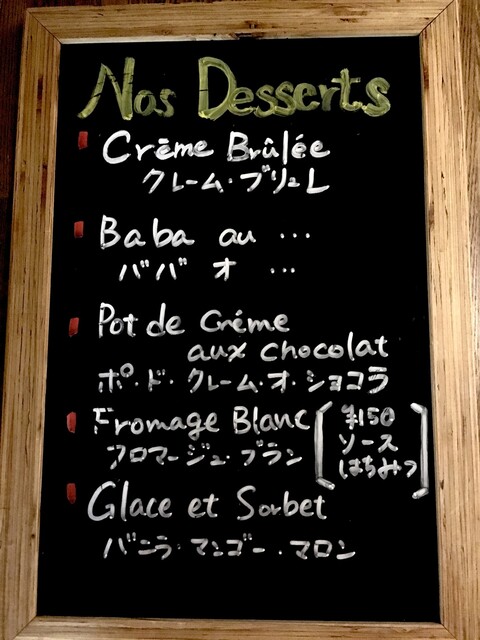 Nos Desserts
Crème Brûlée
クレーム・ブリュレ
Baba au ...
ババ オ ...
Pot de Créme
aux chocolat
ポ・ド・クレーム・オ・ショコラ
Fromage Blanc
フロマージュ・ブラン
¥150
ソース
はちみつ
Glace et Sorbet
バニラ・マンゴー・マロン